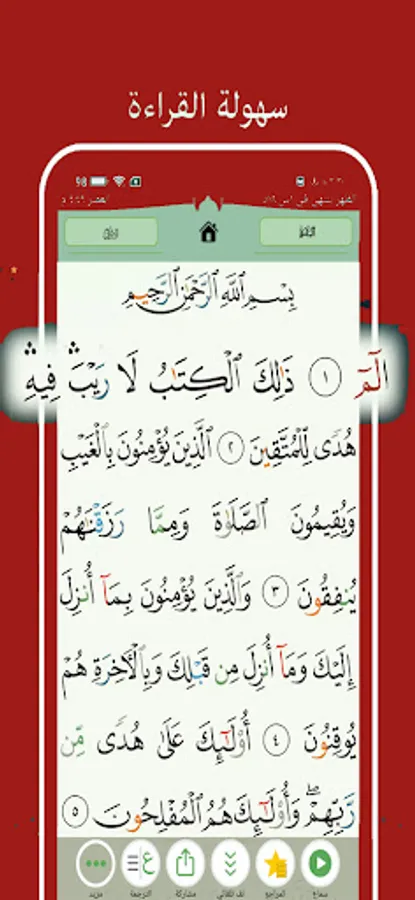 سهولة القراءة
98
بِسْمِ ٱللَّهِ ٱلرَّحْمَٰنِ ٱلرَّحِيمِ
الٓمٓ ١ ذَٰلِكَ ٱلْكِتَٰبُ لَا رَيْبَ ۛ فِيهِ ۛ
هُدًى لِّلْمُتَّقِينَ ٢ ٱلَّذِينَ يُؤْمِنُونَ بِٱلْغَيْبِ
وَيُقِيمُونَ ٱلصَّلَوٰةَ وَمِمَّا رَزَقْنَٰهُمْ
يُنفِقُونَ ٣ وَٱلَّذِينَ يُؤْمِنُونَ بِمَآ أُنزِلَ
إِلَيْكَ وَمَآ أُنزِلَ مِن قَبْلِكَ وَبِٱلْأَخِرَةِ هُمْ
يُوقِنُونَ ٤ أُوْلَٰٓئِكَ عَلَىٰ هُدًى مِّن
رَّبِّهِمْ ۖ وَأُوْلَٰٓئِكَ هُمُ ٱلْمُفْلِحُونَ ٥
سماع
المراجع
لف تلقائي
مشاركة
الترجمة
مزيد